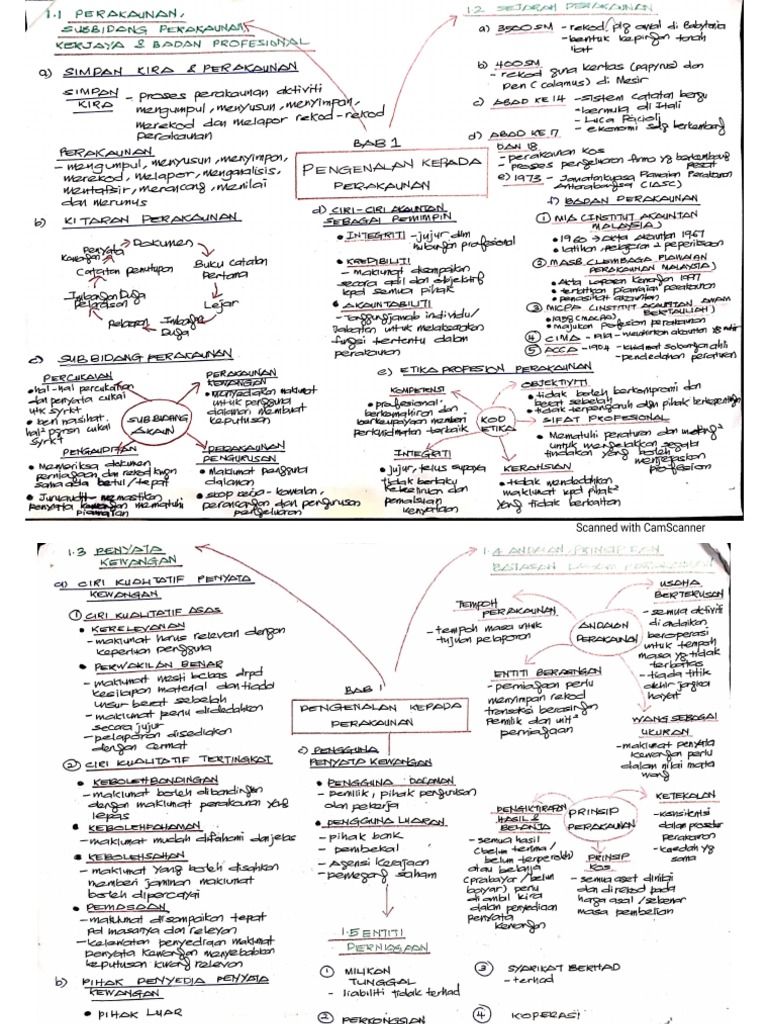 1.1 PERAKAUNAN,
SUBBIDANG PERAKAUNAN
KERJAYA & BADAN PROFESIONAL
a) SIMPAN KIRA & PERAKAUNAN
SIMPAN KIRA - Proses perakaunan aktiviti
mengumpul, menyusun, menyimpan,
merekod dan melapor rekod-rekod
perakaunan
PERAKAUNAN
- mengumpul, menyusun, menyimpan,
merekod, melapor, menganalisis,
mentafsir, merancang, menilai
dan merumus
b) KITARAN PERAKAUNAN
Dokumen
Buku Catatan
Pertama
Lejar
Imbangan
Duga
Pelarasan
Imbangan Duga
Pelarasan
Catatan penutupan
Penyata
Kewangan
c) SUBBIDANG PERAKAUNAN
SUBBIDANG
AKAUN
PERCUKAIAN
• hal-hal percukaian
dan penyata cukai
utk syrkt
• beri nasihat
syrkt
PERAKAUNAN
KEWANGAN
• menyediakan maklumat
untuk pengguna
dalaman membuat
keputusan
PENGAUDITAN
• Memeriksa dokumen
perniagaan dan rekod
sama ada betul/tepat
• Juruaudit - memastikan
penyata kewangan mematuhi
piawaian
PERAKAUNAN
PENGURUSAN
• Maklumat pengguna
dalaman
• skop kerja - kawalan,
perancangan dan pengurusan
pengeluaran
BAB 1
PENGENALAN KEPADA
PERAKAUNAN
1.2 SEJARAH PERAKAUNAN
a) 3500SM - rekod plg awal di Babylonia
- bentuk kepingan tanah
liat
b) 400SM
- rekod guna kertas (papyrus) dan
Pen (calamus) di Mesir
c) ABAD KE 14 - sistem catatan bergu
- bermula di Itali
- Luca Pacioli
- ekonomi sdg berkembang
d) ABAD KE 17
DAN 18
- perakaunan kos
- proses pengeluaran firma yg berkembang
pesat
e) 1973 - Jawatankuasa Piawaian Perakaunan
Antarabangsa (IASC)
d) CIRI-CIRI AKAUNTAN
SEBAGAI PEMIMPIN
• INTEGRITI - jujur dlm
hubungan profesional
• KREDIBILITI
- maklumat disampaikan
secara adil dan objektif
kpd semua pihak
• AKAUNTABILITI
- tanggungjawab individu/
jabatan untuk melaksanakan
fungsi tertentu dalam
perakaunan
f) BADAN PERAKAUNAN
① MIA (INSTITUT AKAUNTAN
MALAYSIA)
Akta Akauntan 1967
• latihan, pelajaran & peperiksaan
② MASB (LEMBAGA PIAWAIAN
PERAKAUNAN MALAYSIA)
• Akta Laporan Kewangan 1997
• terbitkan piawaian perakaunan
• penasihat akauntan
③ MICPA (INSTITUT AKAUNTAN AWAM
BERTAULIAH)
• 1958 (MACPA)
• majukan profesion perakaunan
④ CIMA - 1919
⑤ ACCA - 1904
- pendedahan peraturan
e) ETIKA PROFESION PERAKAUNAN
KOD
ETIKA
KOMPETENSI
• profesional,
berkemahiran dan
berkeupayaan memberi
perkhidmatan terbaik
OBJEKTIVITI
• tidak boleh berkompromi dan
berat sebelah
• tidak terpengaruh dlm pihak berkepentingan
SIFAT PROFESIONAL
• Mematuhi peraturan dan
untuk mengelakkan segala
tindakan yang boleh menjejaskan
profesion
INTEGRITI
• jujur, telus supaya
tidak berlaku
dan
pemalsuan
kenyataan
KERAHSIAN
• tidak mendedahkan
maklumat kpd pihak²
yang tidak berkaitan
Scanned with CamScanner
1.3 PENYATA
KEWANGAN
a) CIRI KUALITATIF PENYATA
KEWANGAN
① CIRI KUALITATIF ASAS
• KERELEVANAN
- maklumat harus relevan dengan
keperluan pengguna
• PERWAKILAN BENAR
- maklumat mesti bebas drpd
kesilapan material dan tiada
unsur berat sebelah
- maklumat perlu didedahkan
secara jujur
- pelaporan disediakan
dengan cermat
② CIRI KUALITATIF TERTINGKAT
• KEBOLEHBANDINGAN
- maklumat boleh dibandingkan
dengan maklumat perakaunan yang
lepas
• KEBOLEHFAHAMAN
- maklumat mudah difahami dan jelas
• KEBOLEHSAHAN
- maklumat yang boleh disahkan
memberi jaminan maklumat
boleh dipercayai
• PEMASAAN
- maklumat disampaikan tepat
pd masanya dan relevan
- kelewatan penyediaan maklumat
penyata kewangan menyebabkan
keputusan kurang relevan
b) PIHAK PENYEDIA PENYATA
KEWANGAN
• PIHAK LUAR
BAB 1
PENGENALAN KEPADA
PERAKAUNAN
c) PENGGUNA
PENYATA KEWANGAN
• PENGGUNA DALAMAN
- pemilik, pihak pengurusan
dan pekerja
• PENGGUNA LUARAN
- pihak bank
- pembekal
- agensi kerajaan
- pemegang saham
1.4 ANDAIAN, PRINSIP DAN
BATASAN DALAM PERAKAUNAN
ANDAIAN
PERAKAUNAN
TEMPOH
PERAKAUNAN
- tempoh masa untuk
tujuan pelaporan
USAHA
BERTERUSAN
- semua aktiviti
diandaikan
beroperasi
untuk tempoh
masa yg tidak
terbatas
- tiada titik
akhir jangka
hayat
ENTITI BERASINGAN
- perniagaan perlu
menyimpan rekod
transaksi berasingan
pemilik dan unit²
perniagaan
WANG SEBAGAI
UKURAN
- maklumat penyata
kewangan perlu
dalam nilai mata
wang
PRINSIP
PERAKAUNAN
PENGIKTIRAFAN
HASIL &
BELANJA
- semua hasil
(belum terima/
belum terperoleh)
atau belanja
(prabayar/belum
bayar) perlu
diambil kira
dalam penyediaan
penyata
kewangan
PRINSIP
KOS
- semua aset dinilai
dan direkod pada
harga asal/sebenar
masa pembelian
KETEKALAN
- konsistensi
dalam proses
perakaunan
- kaedah yg
sama
1.5 ENTITI
PERNIAGAAN
① MILIKAN
TUNGGAL
- liabiliti tidak terhad
② PERKONGSIAN
③ SYARIKAT BERHAD
- terhad
④ KOPERASI